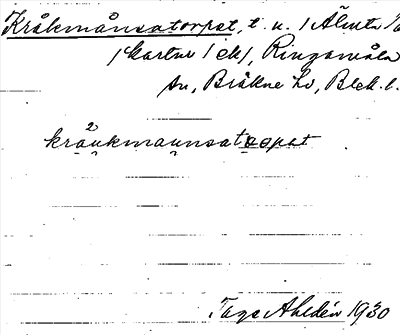 Kråkmånsatorpet, t. u. / Älmta
/kartur / ek/, Ringamåla
sn, Bräkne hd, Blek. l.
kråukmaunsatoopat
Tage Ahldén 1930